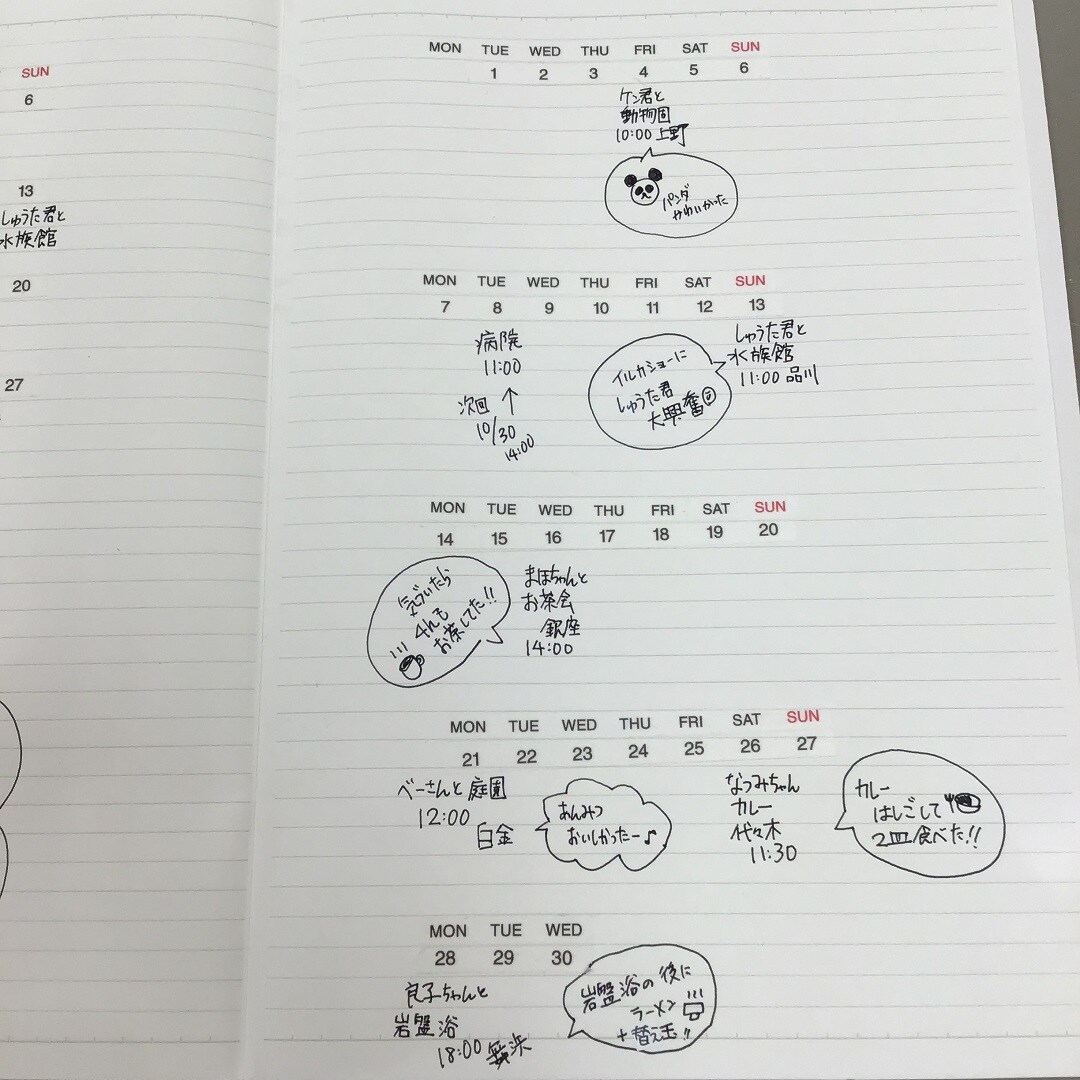 SUN
6
13
しゅうた君と
水族館
20
27
MON TUE WED THU FRI SAT SUN
1 2 3 4 5 6
ケン君と
動物園
10:00 上野
パンダ
かわいかった
MON TUE WED THU FRI SAT SUN
7 8 9 10 11 12 13
病院
11:00
次回
10/30
14:00
イルカショーに
しゅうた君
大興奮
しゅうた君と
水族館
11:00 品川
MON TUE WED THU FRI SAT SUN
14 15 16 17 18 19 20
気づいたら
4hんも
お茶してた!!
まほちゃんと
お茶会
銀座
14:00
MON TUE WED THU FRI SAT SUN
21 22 23 24 25 26 27
べーさんと 庭園
12:00
白金
あんみつ
おいしかったー♪
なつみちゃん
カレー
代々木
11:30
カレー
はしごして
2皿食べた!!
MON TUE WED
28 29 30
良子ちゃんと
岩盤浴
18:00
岩盤浴の後に
ラーメン
+替え玉!!